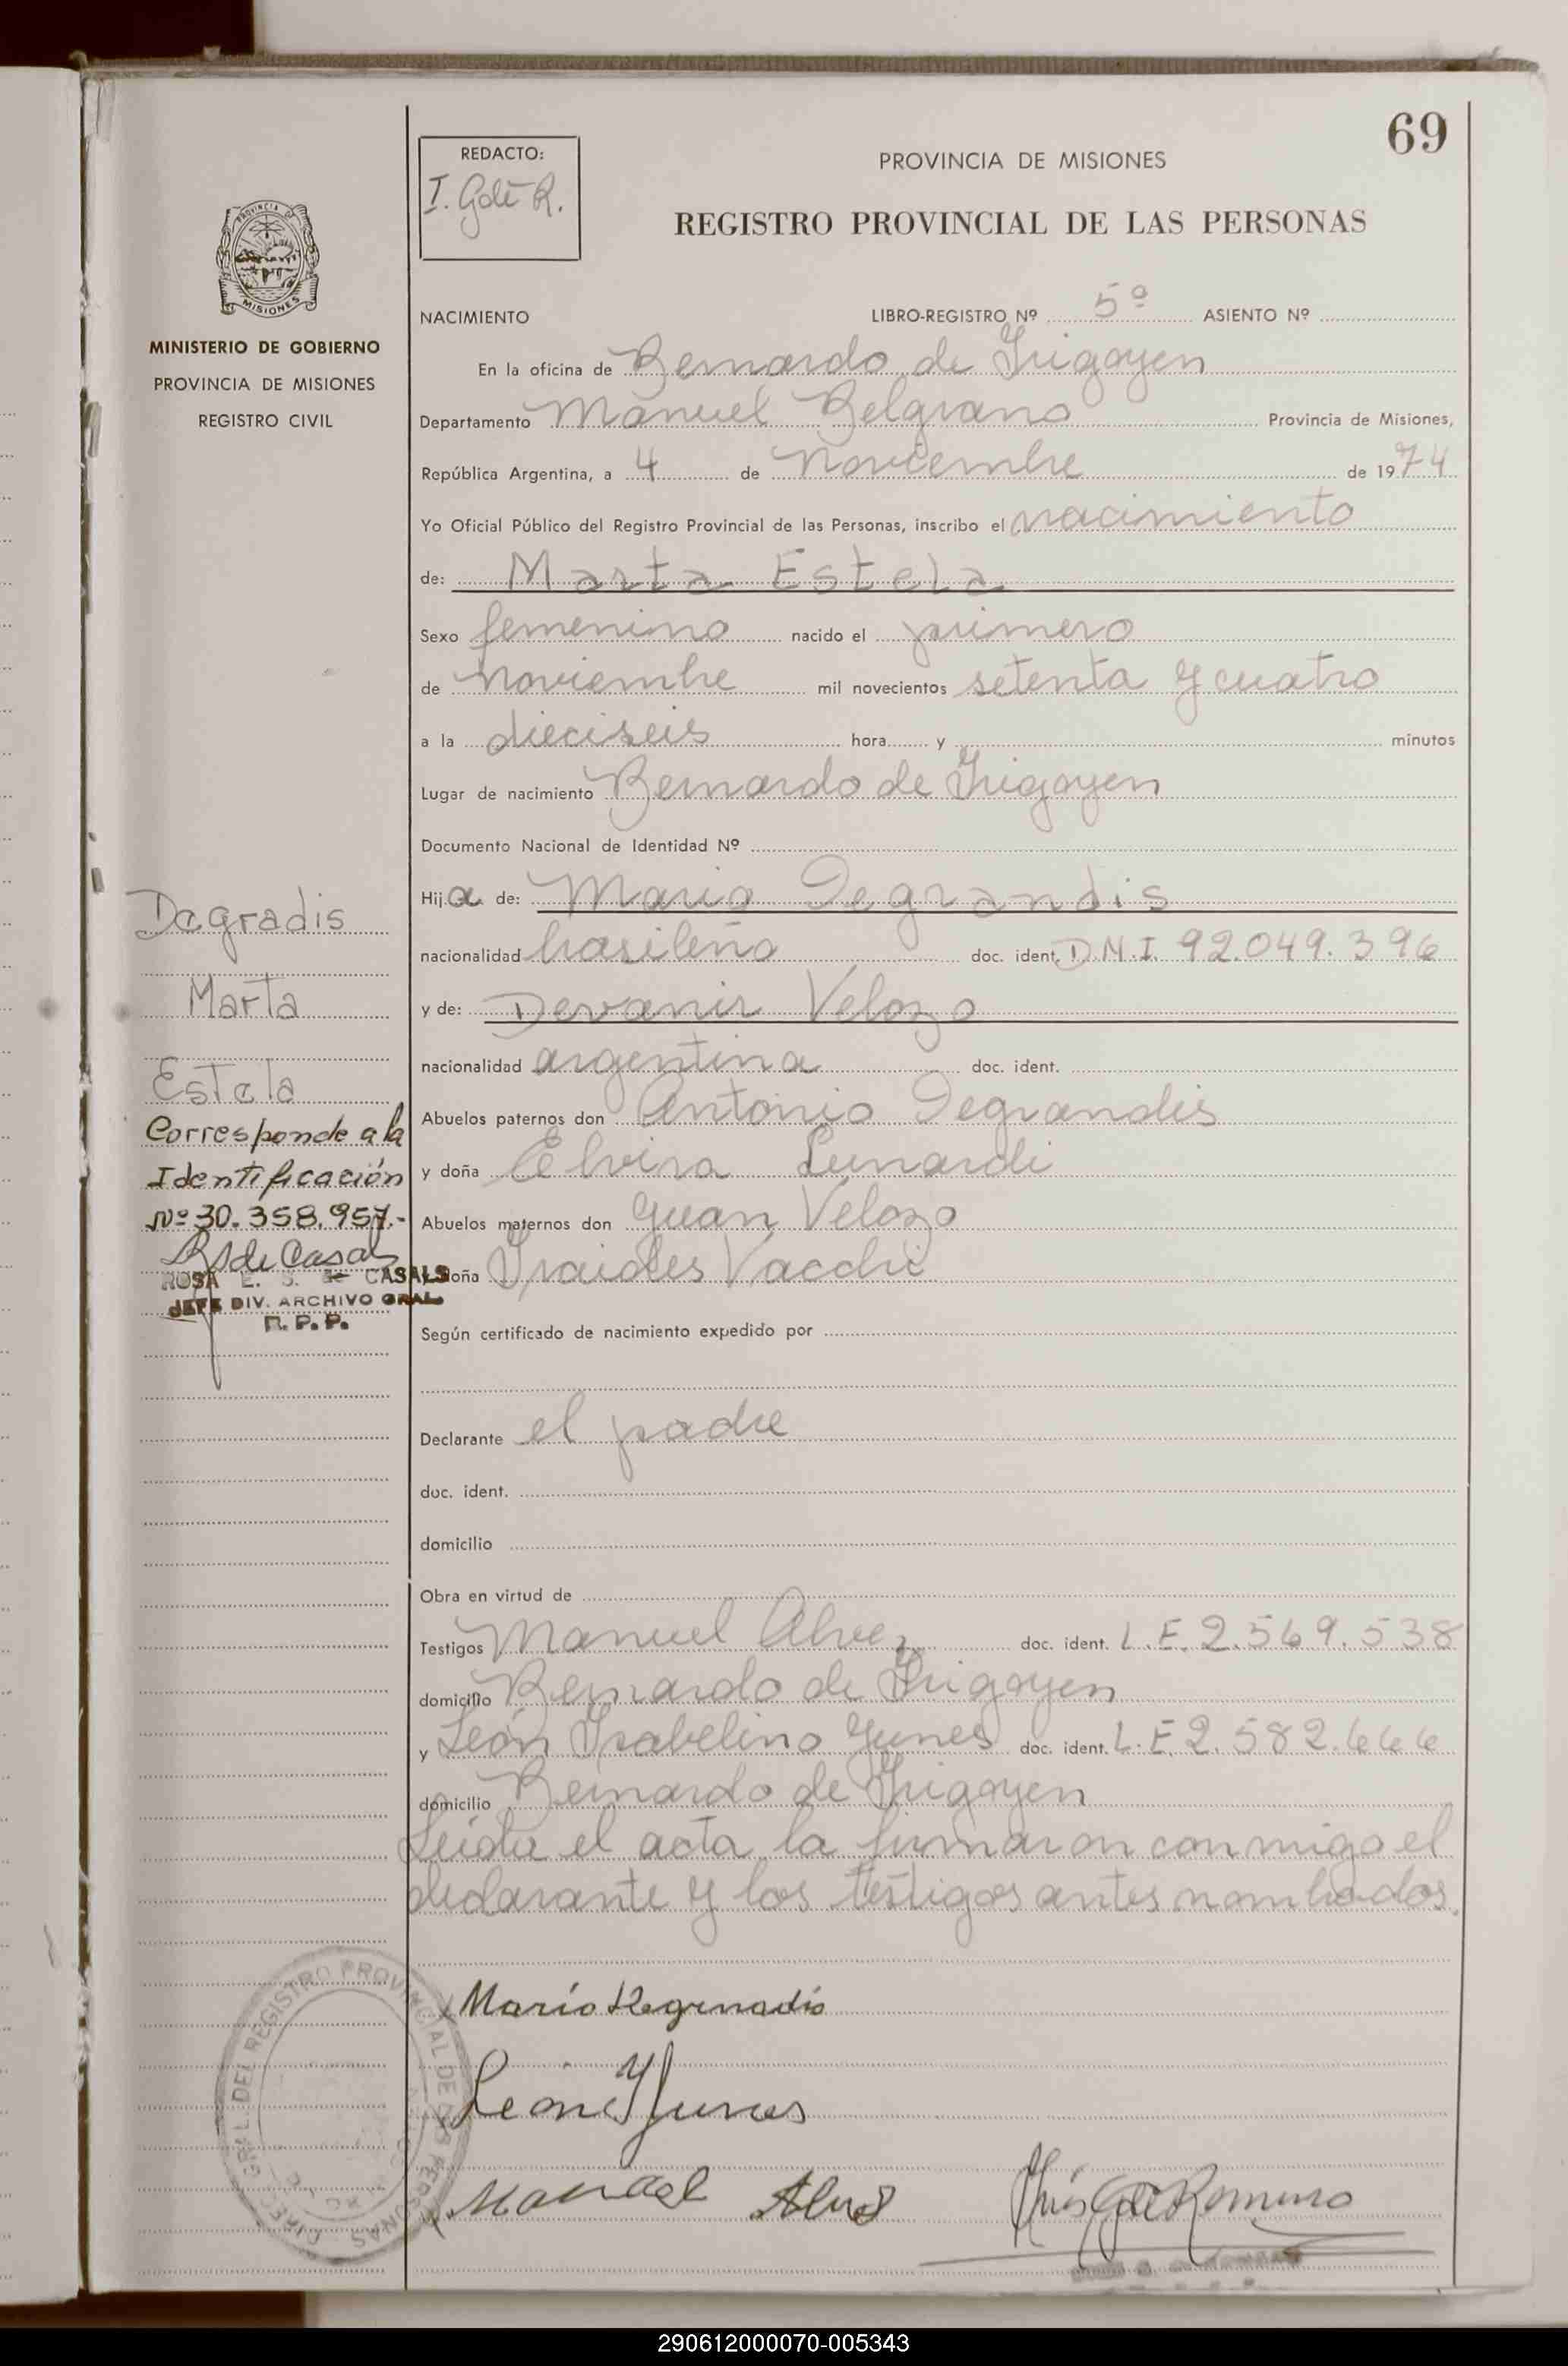 69
REDACTO:
I. Golé R.
PROVINCIA DE MISIONES
REGISTRO PROVINCIAL DE LAS PERSONAS
PROVINCIA DE
MISIONES
MINISTERIO DE GOBIERNO
PROVINCIA DE MISIONES
REGISTRO CIVIL
NACIMIENTO LIBRO-REGISTRO Nº 5º ASIENTO Nº
En la oficina de Bernardo de Irigoyen
Departamento Manuel Belgrano Provincia de Misiones,
República Argentina, a 4 de Noviembre de 1974
Yo Oficial Público del Registro Provincial de las Personas, inscribo el nacimiento
de: Marta Estela
Sexo femenino nacido el primero
de Noviembre mil novecientos setenta y cuatro
a la dieciseis hora y minutos
Lugar de nacimiento Bernardo de Irigoyen
Documento Nacional de Identidad Nº
Hija de: Mario Degrandis
nacionalidad brasileño doc. ident. D.N.I. 92.049.396
y de: Devanir Velozo
nacionalidad argentina doc. ident.
Abuelos paternos don Antonio Degrandis
y doña Elvira Lunardi
Abuelos maternos don Juan Velozo
doña Iraides Vacchi
Según certificado de nacimiento expedido por
Declarante el padre
doc. ident.
domicilio
Obra en virtud de
Testigos Manuel Alvez doc. ident. L.E. 2.569.538
domicilio Bernardo de Irigoyen
y León Isabelino Yunes doc. ident. L.E. 2.582.666
domicilio Bernardo de Irigoyen
Leida el acta la firmaron conmigo el
declarante y los testigos antes nombrados.
Degradis
Marta
Estela
Corresponde a la
Identificación
Nº 30.358.957.-
R S de Casals
ROSA E. S. de CASALS
JEFE DIV. ARCHIVO GRAL.
R. P. P.
DIRECC. GRAL. DEL REGISTRO PROVINCIAL DE LAS PERSONAS
Mario
Leon Yunes
Manuel Alves
Romero
290612000070-005343